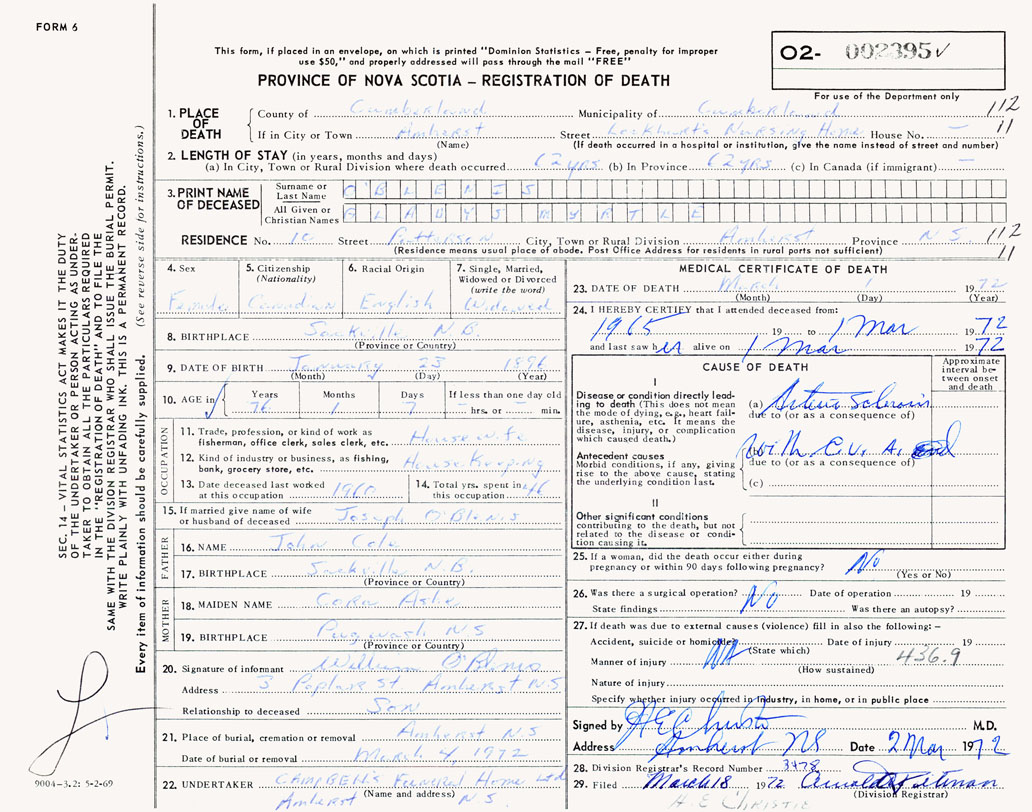 FORM 6
This form, if placed in an envelope, on which is printed "Dominion Statistics – Free, penalty for improper
use $50," and properly addressed will pass through the mail "FREE"
PROVINCE OF NOVA SCOTIA – REGISTRATION OF DEATH
O2- 002395 ✓
For use of the Department only
1. PLACE OF DEATH
County of Cumberland Municipality of Cumberland 112
If in City or Town Amherst Street Lockhart's Nursing Home House No. – 11
(Name) (If death occurred in a hospital or institution, give the name instead of street and number)
2. LENGTH OF STAY (in years, months and days)
(a) In City, Town or Rural Division where death occurred 62 yrs (b) In Province 62 yrs (c) In Canada (if immigrant) –
3. PRINT NAME OF DECEASED
Surname or Last Name O'BLENIS
All Given or Christian Names GLADYS MYRTLE
RESIDENCE No. 10 Street Patterson City, Town or Rural Division Amherst Province N S 112
(Residence means usual place of abode. Post Office Address for residents in rural parts not sufficient) 11
4. Sex Female
5. Citizenship (Nationality) Canadian
6. Racial Origin English
7. Single, Married, Widowed or Divorced (write the word) Widowed
8. BIRTHPLACE Sackville N.B.
(Province or Country)
9. DATE OF BIRTH January 23 1896
(Month) (Day) (Year)
10. AGE in Years Months Days If less than one day old
76 1 7 – hrs. or – min.
OCCUPATION
11. Trade, profession, or kind of work as
fisherman, office clerk, sales clerk, etc. Housewife
12. Kind of industry or business, as fishing,
bank, grocery store, etc. House Keeping
13. Date deceased last worked
at this occupation 1960
14. Total yrs. spent in
this occupation 46
15. If married give name of wife
or husband of deceased Joseph O'Blenis
FATHER
16. NAME John Cole
17. BIRTHPLACE Sackville N.B.
(Province or Country)
MOTHER
18. MAIDEN NAME Cora
19. BIRTHPLACE Pugwash N S
(Province or Country)
20. Signature of informant William O'Blenis
Address 3 Poplar St Amherst N S
Relationship to deceased Son
21. Place of burial, cremation or removal Amherst N S
Date of burial or removal March 4, 1972
22. UNDERTAKER CAMPBELL'S Funeral Home Ltd
(Name and address)
Amherst N.S.
MEDICAL CERTIFICATE OF DEATH
23. DATE OF DEATH March 1 1972
(Month) (Day) (Year)
24. I HEREBY CERTIFY that I attended deceased from:
1965 19 to 1 Mar 1972
and last saw her alive on 1 Mar 1972
CAUSE OF DEATH
Approximate interval between onset and death
I
Disease or condition directly lead-
ing to death (This does not mean
the mode of dying, e.g., heart fail-
ure, asthenia, etc. It means the
disease, injury, or complication
which caused death.)
(a) Arterio Sclerosis
due to (or as a consequence of)
Antecedent causes
Morbid conditions, if any, giving
rise to the above cause, stating
the underlying condition last.
(b) With C.V.A.
due to (or as a consequence of)
(c)
II
Other significant conditions
contributing to the death, but not
related to the disease or condi-
tion causing it.
25. If a woman, did the death occur either during
pregnancy or within 90 days following pregnancy? No
(Yes or No)
26. Was there a surgical operation? No Date of operation 19
State findings Was there an autopsy?
27. If death was due to external causes (violence) fill in also the following: –
Accident, suicide or homicide Date of injury 19
(State which)
Manner of injury NA 436.9
(How sustained)
Nature of injury
Specify whether injury occurred in industry, in home, or in public place
Signed by H E Christie M.D.
Address Amherst NS Date 2 Mar 1972
28. Division Registrar's Record Number 3478
29. Filed March 18 1972
(Division Registrar)
H. E CHRISTIE
SEC. 14 – VITAL STATISTICS ACT MAKES IT THE DUTY
OF THE UNDERTAKER OR PERSON ACTING AS UNDER-
TAKER TO OBTAIN ALL THE PARTICULARS REQUIRED
IN THE "REGISTRATION OF DEATH" AND TO FILE THE
SAME WITH THE DIVISION REGISTRAR WHO SHALL ISSUE THE BURIAL PERMIT.
WRITE PLAINLY WITH UNFADING INK. THIS IS A PERMANENT RECORD.
Every item of information should be carefully supplied. (See reverse side for instructions.)
9004-3.2: 5-2-69